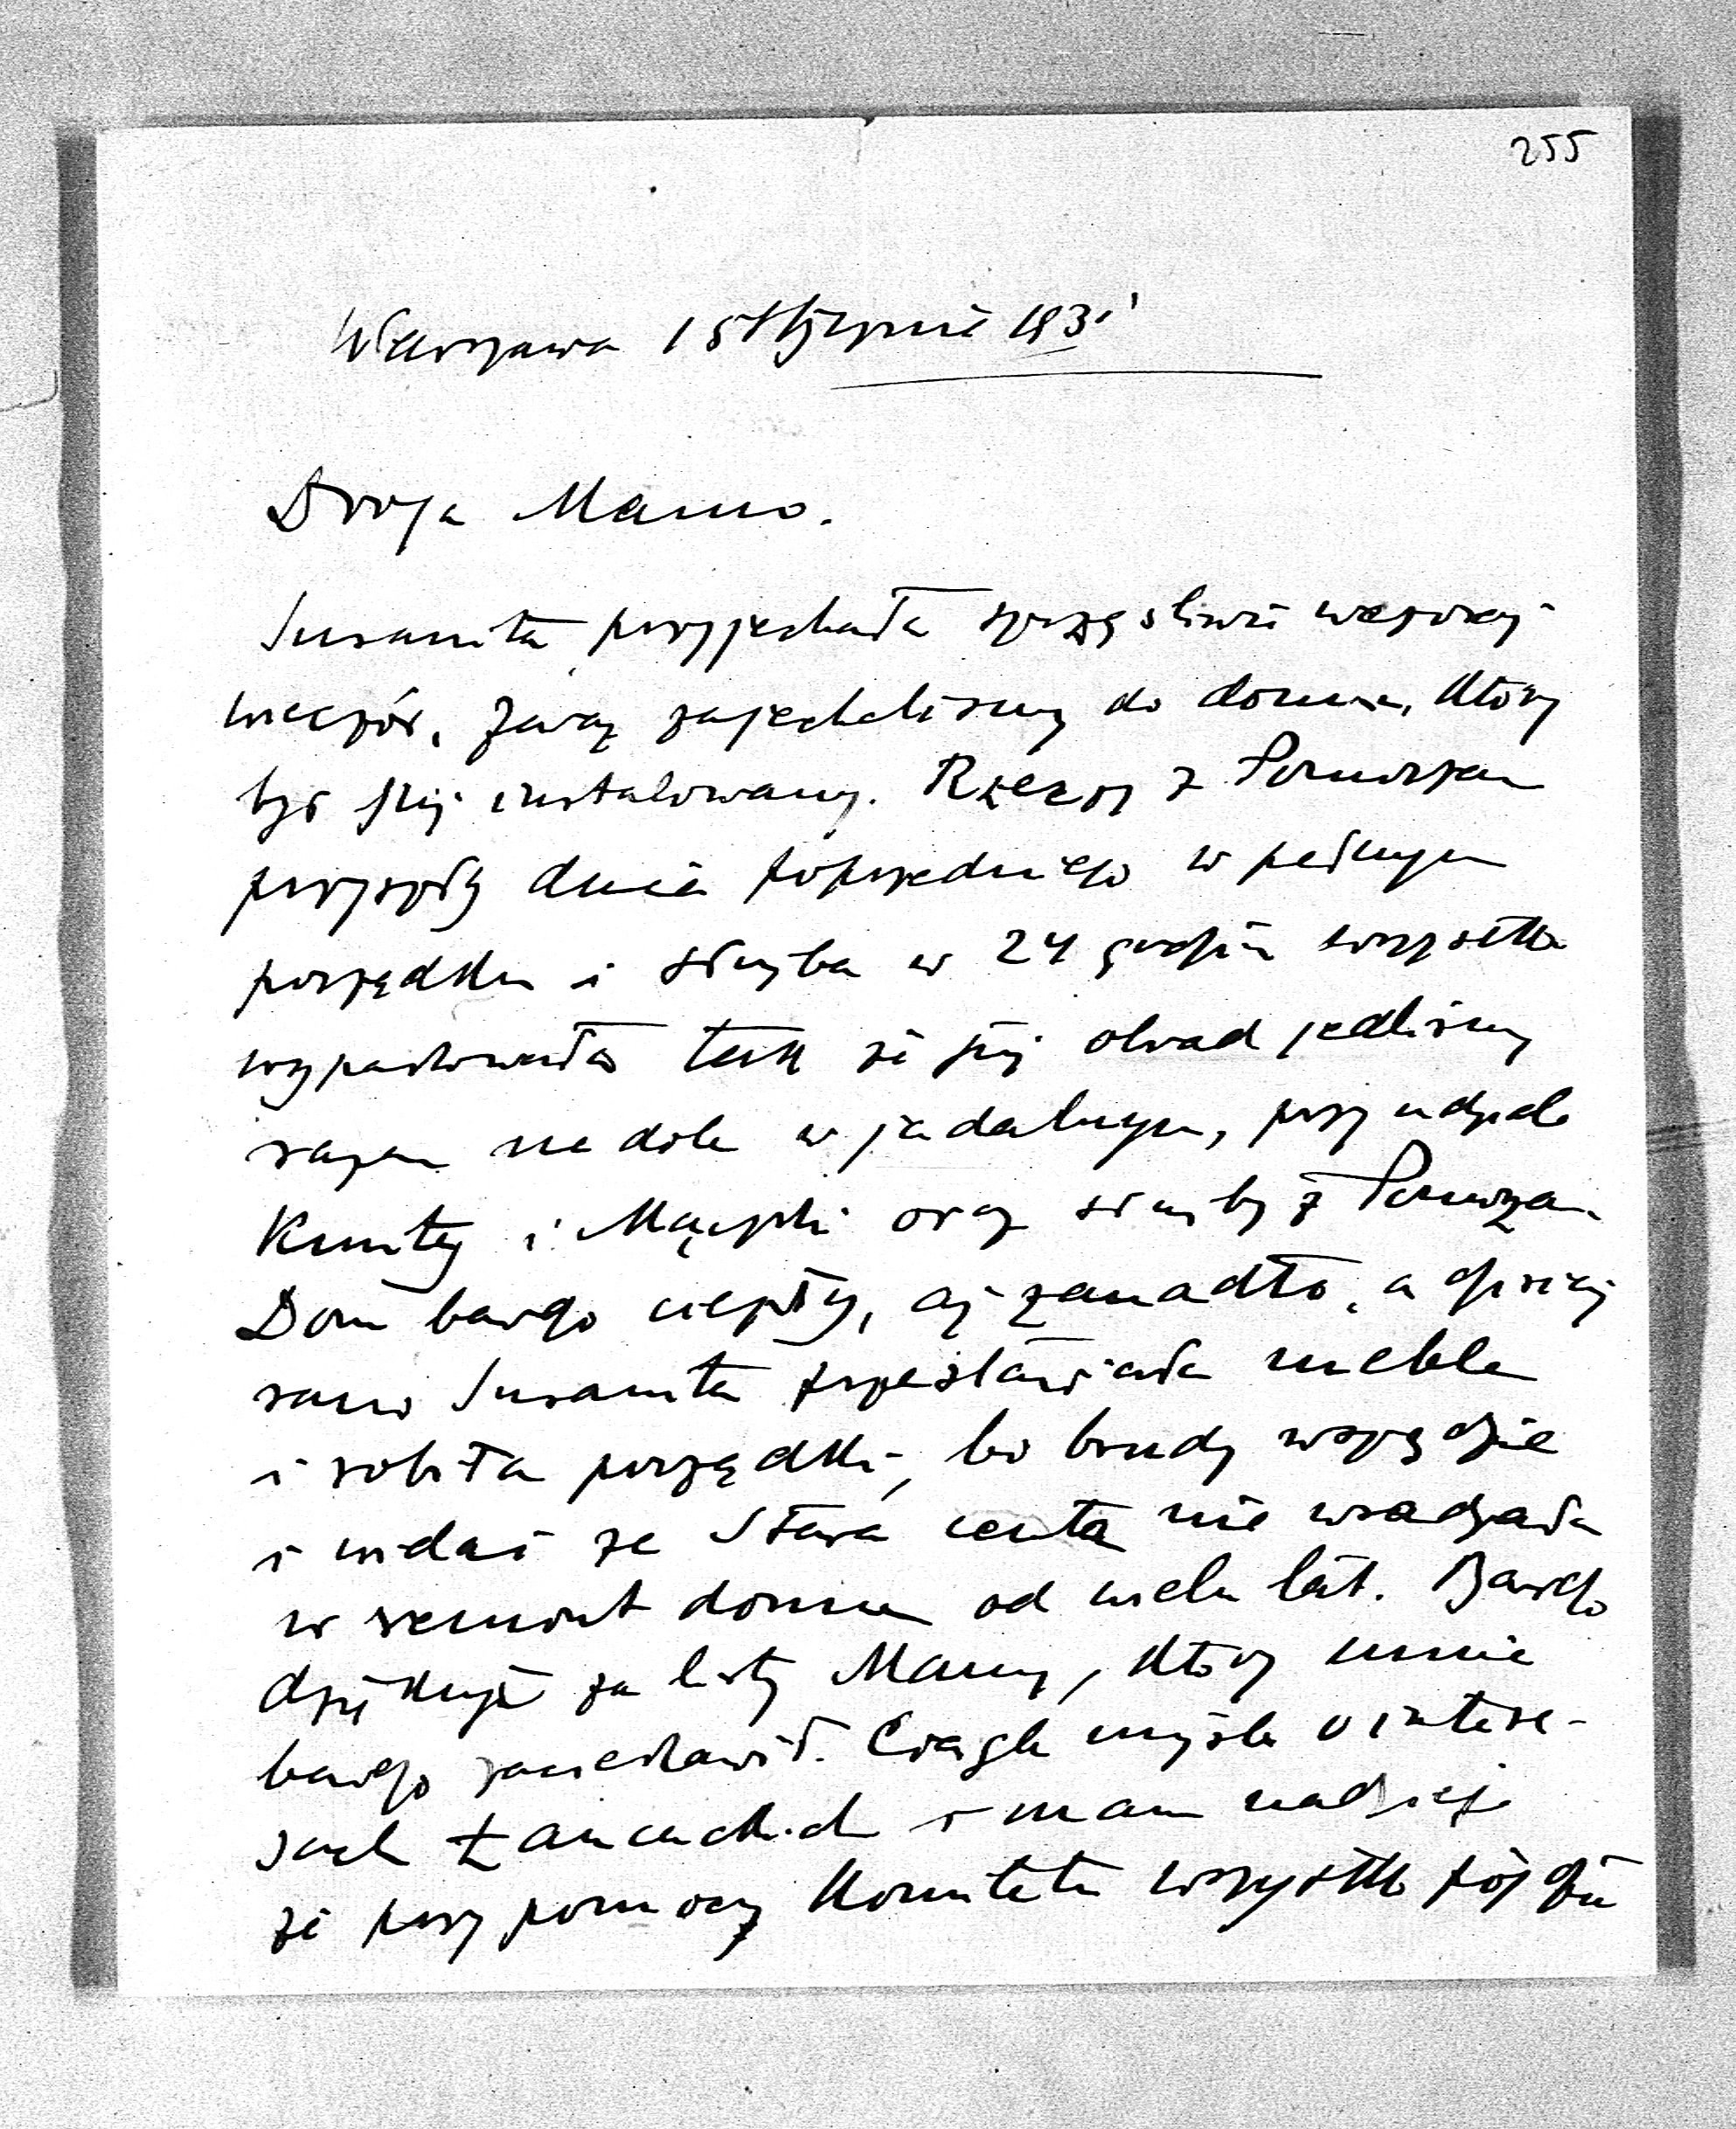 255
Warszawa 15 stycznia 1931
Droga Mamo.
Susanita przyjechała szczęśliwie wczoraj
wieczór, zaraz zajechaliśmy do domu, który
był już instalowany. Rzeczy z Pomorzan
przyszły dnia poprzedniego w pełnym
porządku i służba w 24 godzin wszystko
wypakowała tak że już obiad jedliśmy
razem na dole w jadalnym, przy udziale
Kunity i oraz służby z Pomorzan.
Dom bardzo ciepły, aż zanadto, a dzisiaj
rano Susanita przestawiała meble
i robiła porządki, bo brudy wszędzie
i widać że Stara centa nie wsadzała
w remont domu od wielu lat. Bardzo
dziękuję za listy Mamy, który mnie
bardzo zaciekawił. Ciągle myślę o intere-
sach Łańcuckich i mam nadzieję
że przy pomocy Komitetu wszystko pójdzie